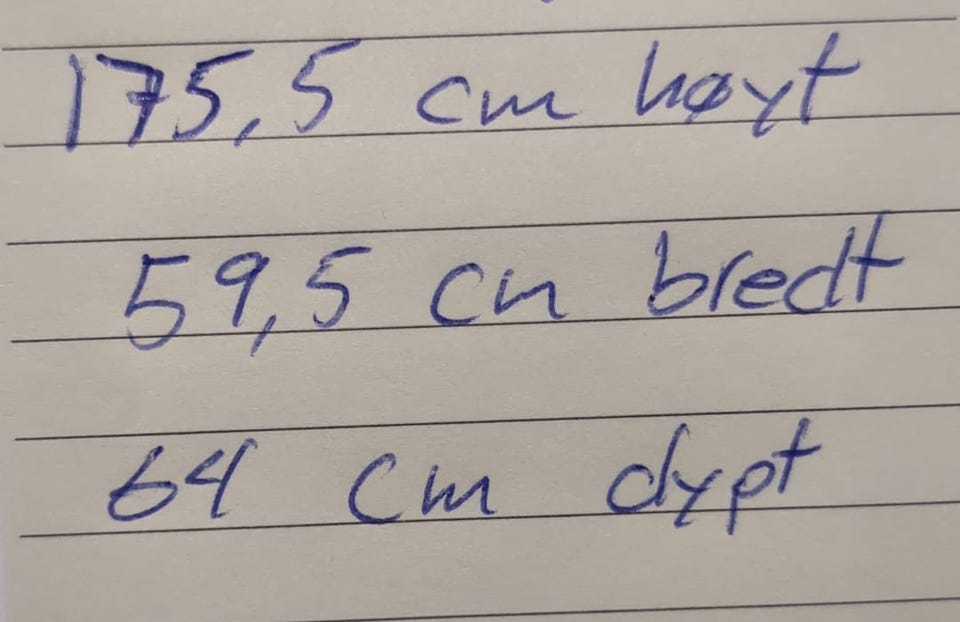 175,5 cm høyt
59,5 cm bredt
64 cm dypt